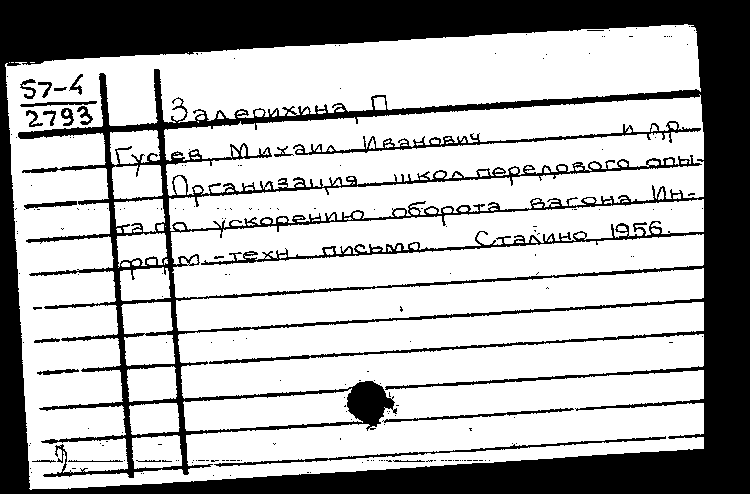 57-4
2793
Залерихина, П.
Гусев, Михаил Иванович и др.
Организация школ передового опы-
та по ускорению оборота вагона. Ин-
форм.-техн. письмо. Сталино, 1956.